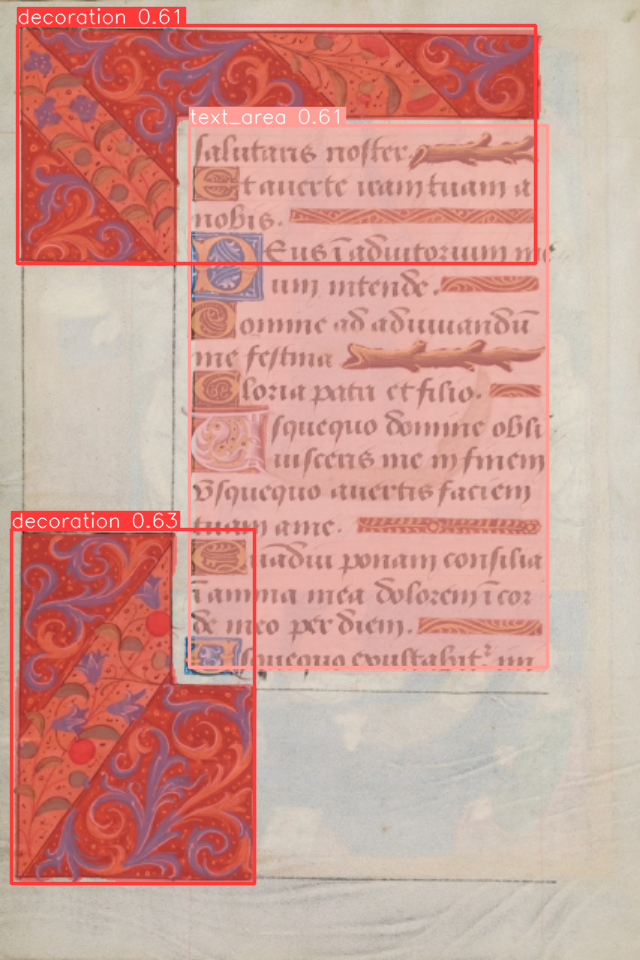 decoration 0.61
text_area 0.61
salutaris noster.
Et auerte iram tuam a
nobis.
Deus ī adiutorium me
um intende.
Domine ad adiuuandū
me festina
Gloria patri et filio.
Usquequo domine obli
uisceris me in finem
vsquequo auertis faciem
tuam a me.
Quādiu ponam consilia
ī anima mea dolorem ī cor
de meo per diem.
Usquequo exultabit
decoration 0.63